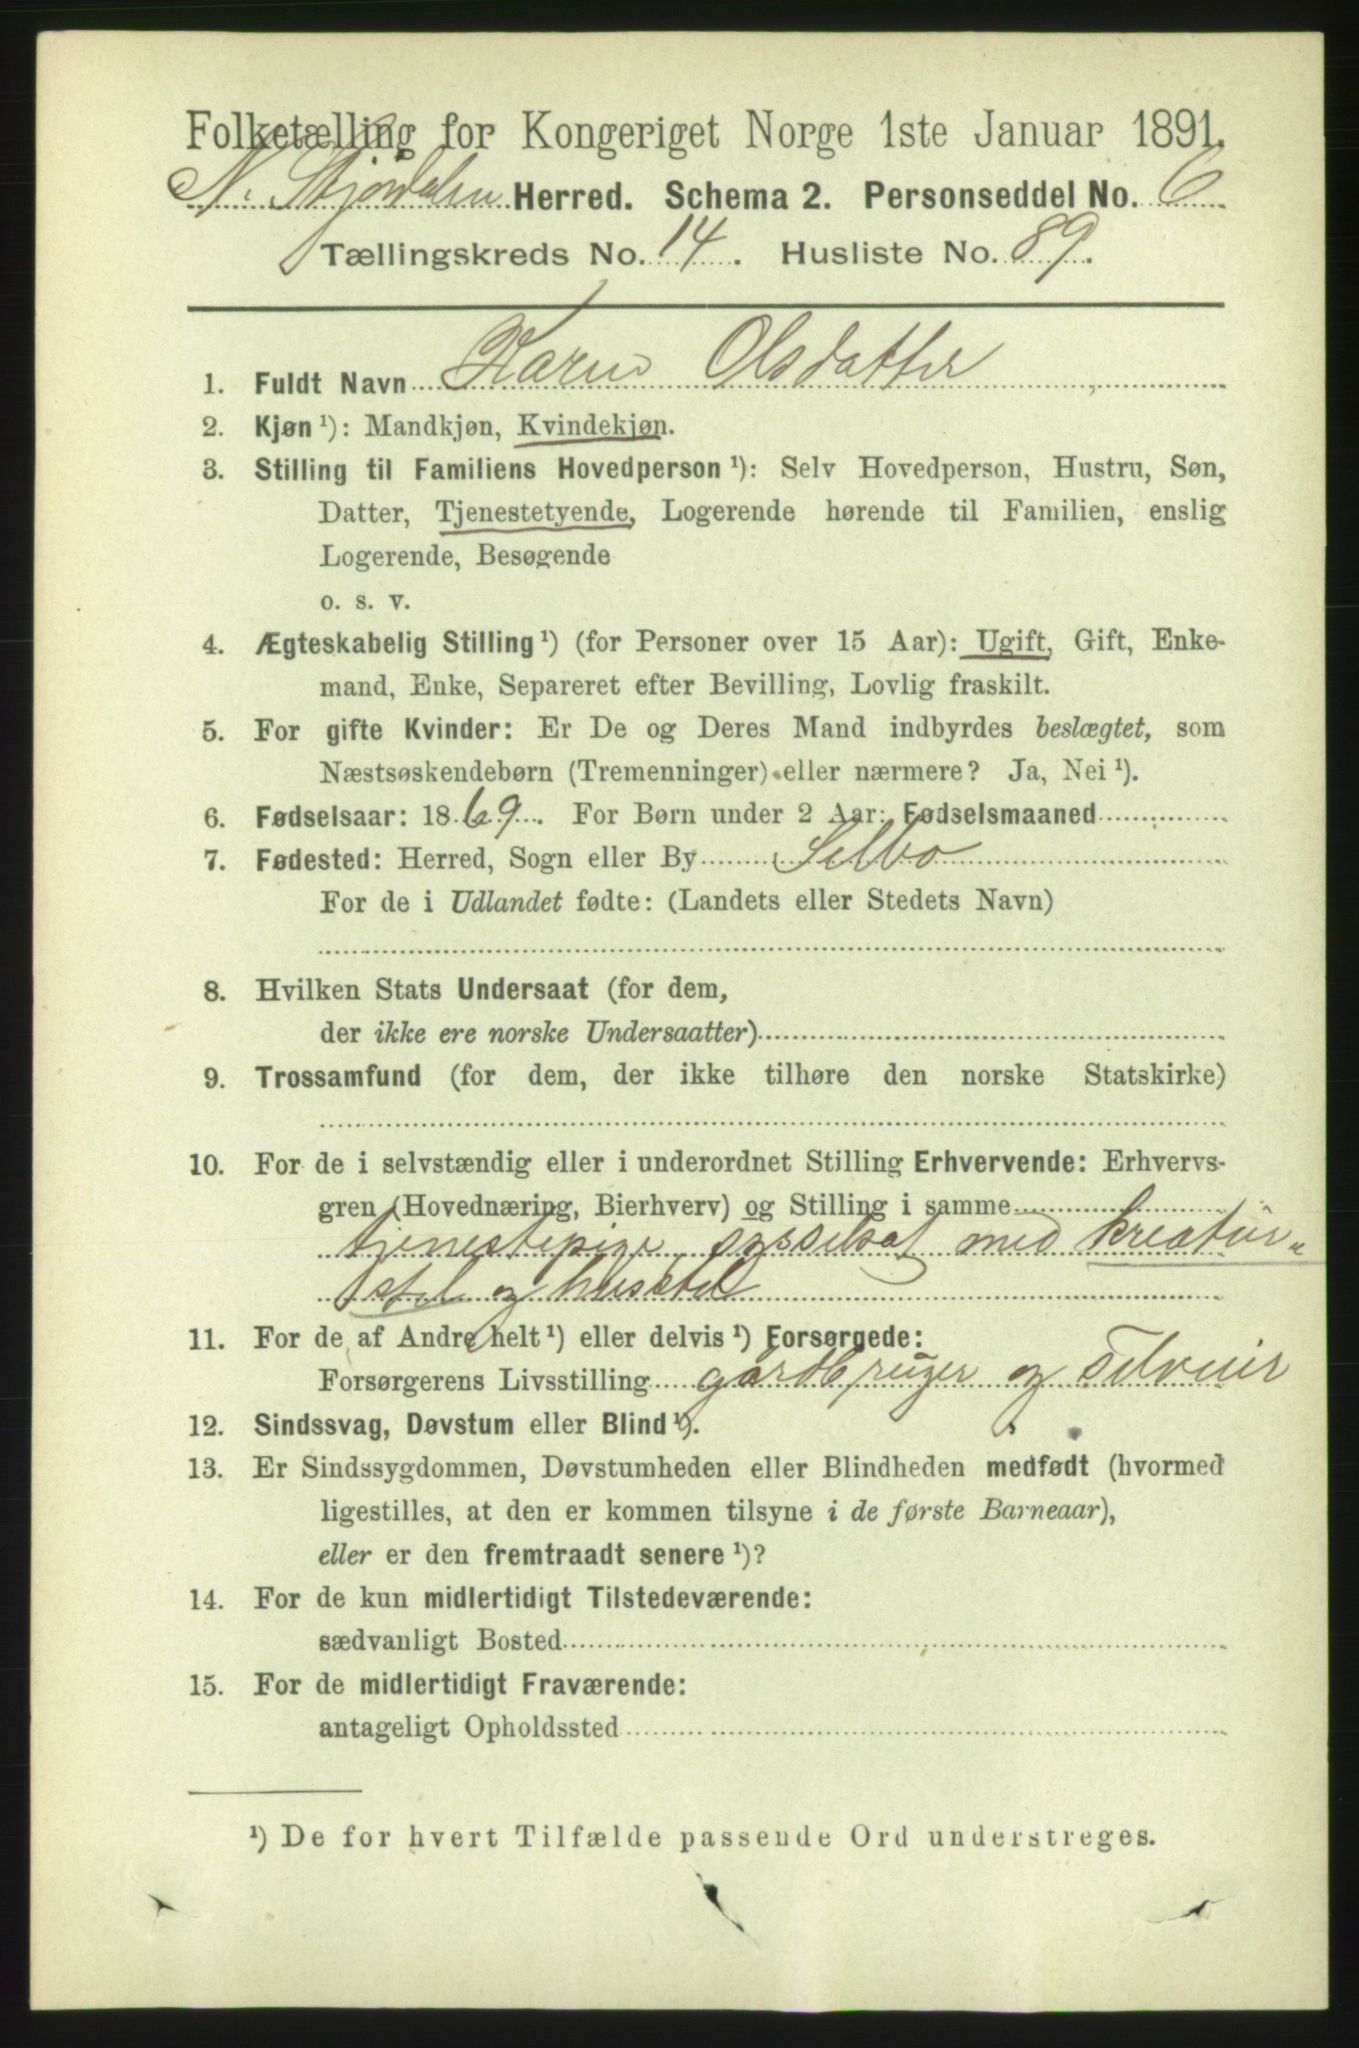 Folketælling for Kongeriget Norge 1ste Januar 1891.
N. Stjørdalen Herred. Schema 2. Personseddel No. 6
Tællingskreds No. 14. Husliste No. 89.
1. Fuldt Navn Karen Olsdatter
2. Kjøn ¹): Mandkjøn, Kvindekjøn.
3. Stilling til Familiens Hovedperson ¹): Selv Hovedperson, Hustru, Søn,
Datter, Tjenestetyende, Logerende hørende til Familien, enslig
Logerende, Besøgende
o. s. v.
4. Ægteskabelig Stilling ¹) (for Personer over 15 Aar): Ugift, Gift, Enke-
mand, Enke, Separeret efter Bevilling, Lovlig fraskilt.
5. For gifte Kvinder: Er De og Deres Mand indbyrdes beslægtet, som
Næstsøskendebørn (Tremenninger) eller nærmere? Ja, Nei ¹).
6. Fødselsaar: 1869. For Børn under 2 Aar: Fødselsmaaned
7. Fødested: Herred, Sogn eller By Selbo
For de i Udlandet fødte: (Landets eller Stedets Navn)
8. Hvilken Stats Undersaat (for dem,
der ikke ere norske Undersaatter)
9. Trossamfund (for dem, der ikke tilhøre den norske Statskirke)
10. For de i selvstændig eller i underordnet Stilling Erhvervende: Erhvervs-
gren (Hovednæring, Bierhverv) og Stilling i samme
tjenestepige sysselsat med kreatur-
stel og husstel
11. For de af Andre helt ¹) eller delvis ¹) Forsørgede:
Forsørgerens Livsstilling gårdbruger og Selveier
12. Sindssvag, Døvstum eller Blind ¹).
13. Er Sindssygdommen, Døvstumheden eller Blindheden medfødt (hvormed
ligestilles, at den er kommen tilsyne i de første Barneaar),
eller er den fremtraadt senere ¹)?
14. For de kun midlertidigt Tilstedeværende:
sædvanligt Bosted
15. For de midlertidigt Fraværende:
antageligt Opholdssted
¹) De for hvert Tilfælde passende Ord understreges.